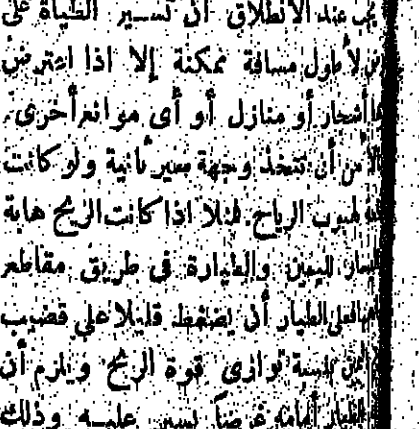 يجب عند الانطلاق ان تسير الطيارة على
لأطول مسافة ممكنة إلا اذا اعترض
أشجار أو منازل أو أى موانع أخرى
أن تتخذ وجهة سير ثانية ولو كانت
لهبوب الرياح. فمثلا اذا كانت الريح هابة
اليمين والطيارة فى طريق مقاطع
فعلى الطيار أن يضغط قليلا على قضيب
بنسبة توازى قوة الريح ويلزم أن
الطيار أمامه غرضاً يسير عليه وذلك